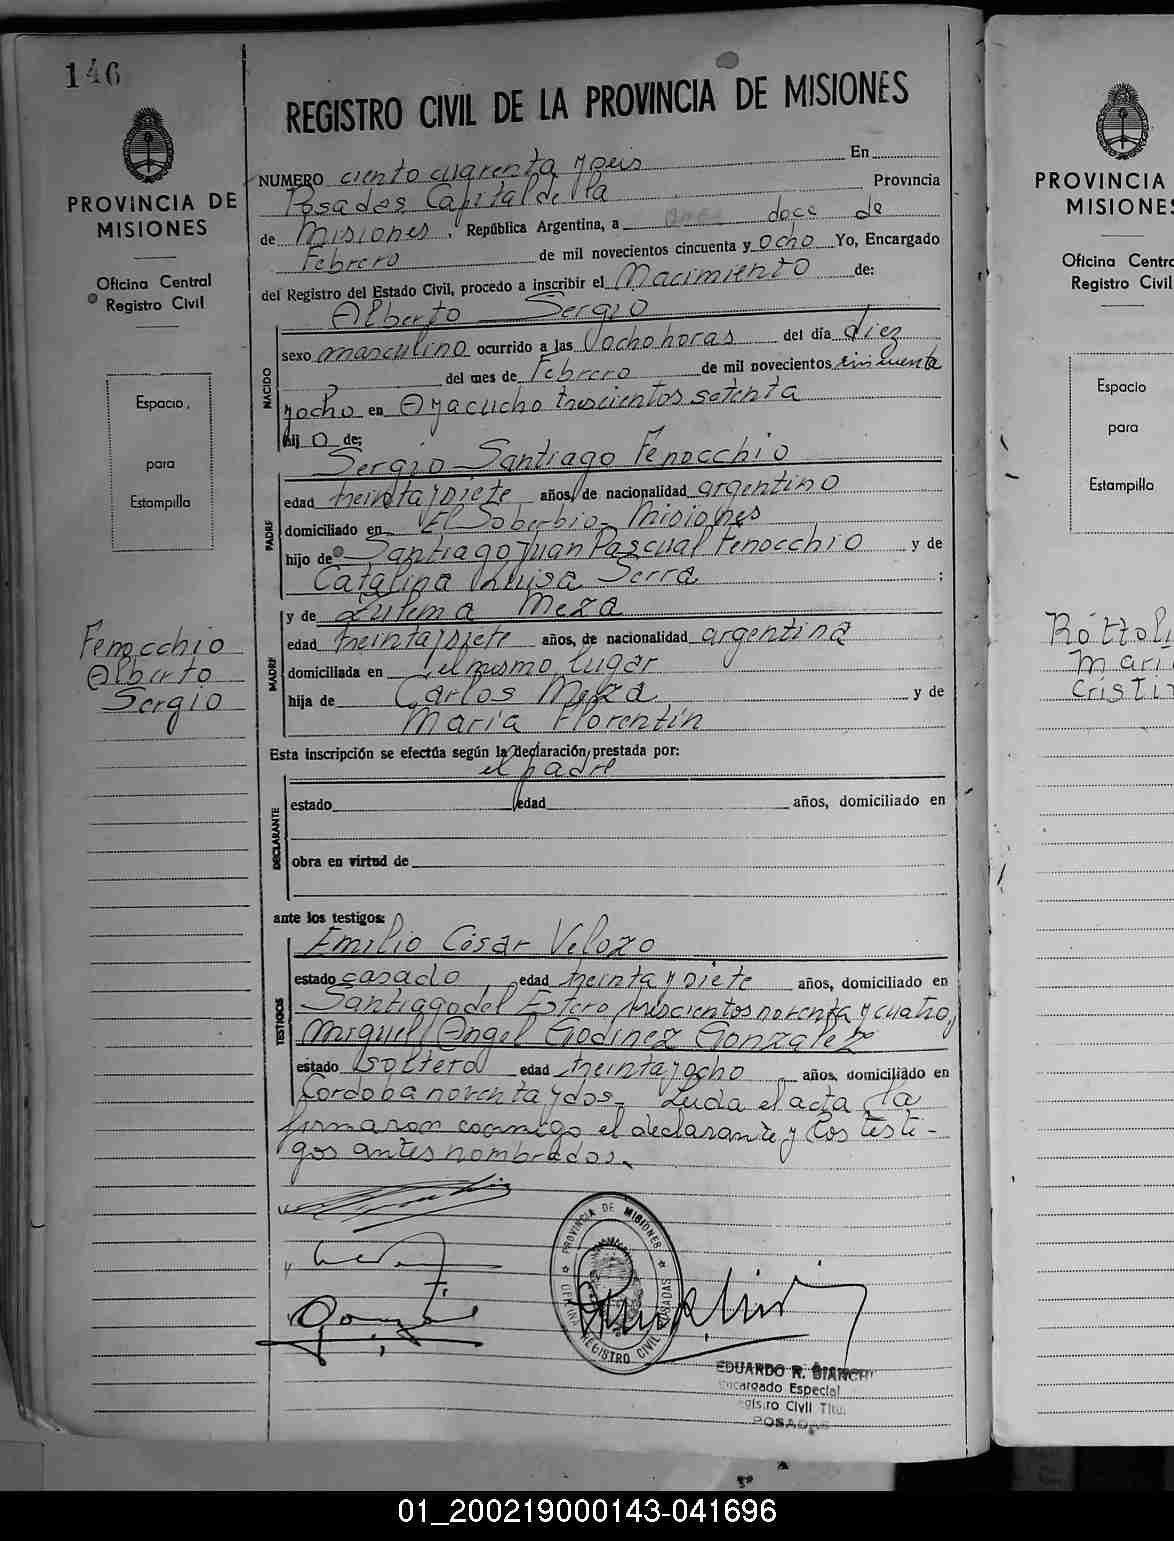 146
PROVINCIA DE
MISIONES
Oficina Central
Registro Civil
Espacio
para
Estampilla
Fenocchio
Alberto
Sergio
REGISTRO CIVIL DE LA PROVINCIA DE MISIONES
NUMERO ciento cuarenta y seis En
Posadas Capital de la Provincia
de Misiones, República Argentina, a doce de
Febrero de mil novecientos cincuenta y ocho Yo, Encargado
del Registro del Estado Civil, procedo a inscribir el Nacimiento de:
Alberto Sergio
NACIDO
sexo masculino ocurrido a las ocho horas del día diez
del mes de Febrero de mil novecientos cincuenta
y ocho en Ayacucho trescientos setenta
hijo de:
Sergio Santiago Fenocchio
PADRE
edad treinta y siete años, de nacionalidad argentino
domiciliado en El Soberbio - Misiones
hijo de Santiago Juan Pascual Fenocchio y de
Catalina Luisa Serra ;
y de Zulema Meza
MADRE
edad treinta y siete años, de nacionalidad argentina
domiciliada en el mismo lugar
hija de Carlos Meza y de
María Florentín
Esta inscripción se efectúa según la declaración prestada por:
el padre
DECLARANTE
estado edad años, domiciliado en
obra en virtud de
ante los testigos:
Emilio César Velozo
TESTIGOS
estado casado, edad treinta y siete años, domiciliado en
Santiago del Estero trescientos noventa y cuatro,
Miguel Angel Godinez Gonzalez
estado soltero edad treinta y ocho años, domiciliado en
Cordoba noventa y dos. Leída el acta la
firmaron conmigo el declarante y los testi-
gos antes nombrados.
PROVINCIA DE MISIONES
OFICINA REGISTRO CIVIL POSADAS
EDUARDO R. BIANCHI
Encargado Especial
Registro Civil Titu.
POSADAS
PROVINCIA
MISIONES
Oficina Centra
Registro Civil
Espacio
para
Estampilla
Rottoli
Mari
Cristi
01_200219000143-041696